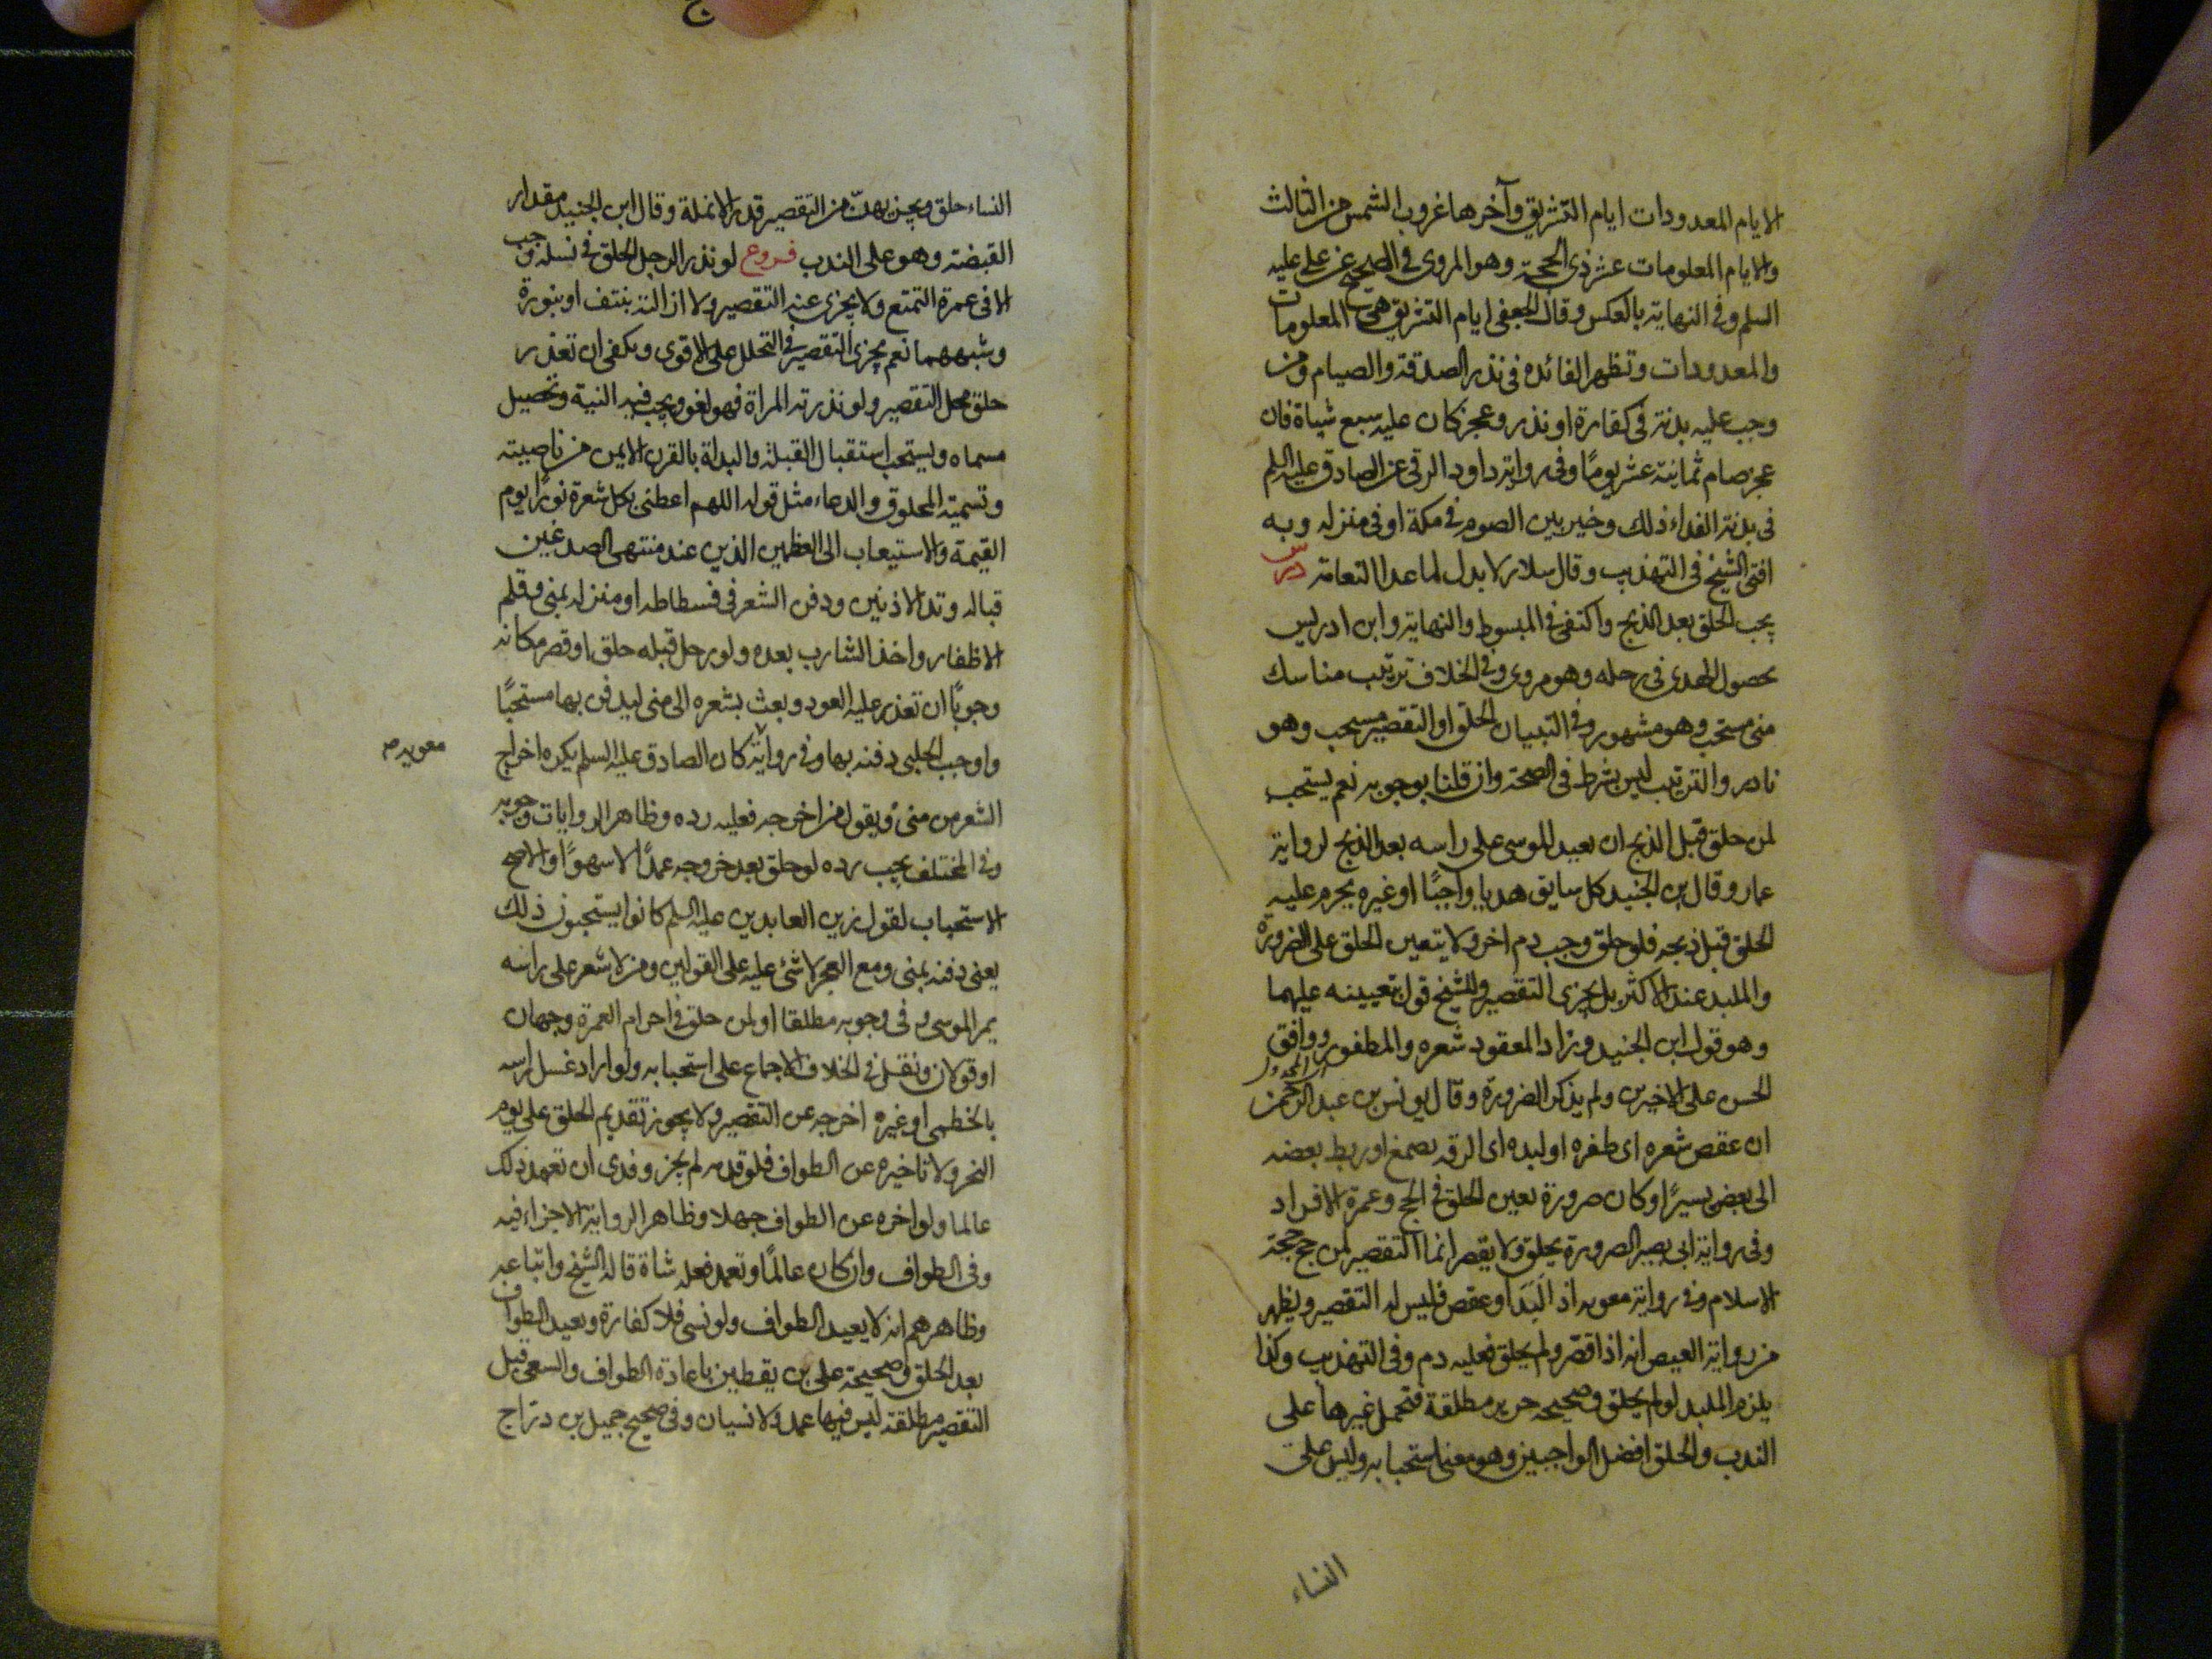 الايام المعدودات ايام التشريق وآخرها غروب الشمس من الثالث
والايام المعلومات عشر ذى الحجة وهو المروى فى الصحيح عن على عليه
السلم وفى النهاية بالعكس وقال الجعفى ايام التشريق هى المعلومات
والمعدودات وتظهر الفائده فى نذر الصدقة والصيام ومن
وجب عليه بدنة فى كفارة او نذر وعجز كان عليه سبع شياة فان
عجز صام ثمانية عشر يومًا وفى رواية داود الرقى عن الصادق عليه السلم
فى بدنة الفداء ذلك وخير بين الصوم فى مكة او فى منزله وبه
افتى الشيخ فى التهذيب وقال سلار لا بدل لما عدا النعامة درس
يجب الحلق بعد الذبح واكتفى فى المبسوط والنهاية وابن ادريس
بحصول الهدى فى رحله وهو مروى وفى الخلاف ترتيب مناسك
منى مستحب وهو مشهور وفى التبيان الحلق او التقصير مستحب وهو
نادر والترتيب ليس بشرط فى الصحة وان قلنا بوجوبه نعم يستحب
لمن حلق قبل الذبح ان يعيد الموسى على راسه بعد الذبح لرواية
عمار وقال بن الجنيد كل سايق هديا واجبًا او غيره يحرم عليه
الحلق قبل ذبحه فلو حلق وجب دم اخر ولا يتعين الحلق على الضرورة
والملبد عند الاكثر بل يجزى التقصير وللشيخ قول بتعيينه عليهما
وهو قول ابن الجنيد وزاد المعقود شعره والمظفور ووافق
الحسن على الاخيرين ولم يذكر الضرورة وقال يونس بن عبد الرحمن
ان عقص شعره اى ظفره او لبده اى الزقه بصمغ او ربط بعضه
الى بعض بسير او كان صرورة تعين الحلق فى الحج وعمرة الافراد
وفى رواية ابى بصير الصرورة يحلق ولا يقصر انما التقصير لمن حج حجة
الاسلام وفى رواية معويه اذا لبد او عقص فليس له التقصير ويظهر
من رواية العيص انه اذا قصّر ولم يحلق فعليه دم وفى التهذيب وكذا
يلزم الملبد لو لم يحلق وصحيحة حريز مطلقة فتحمل غيرها على
الندب والحلق افضل الواجبين وهو معنى استحبابه وليس على
النساء
النساء حلق ويجزيهن من التقصير قدر الانملة وقال ابن الجنيد مقدار
القبضة وهو على الندب فروع لو نذر الرجل الحلق فى نسكه وجب
الا فى عمرة التمتع ولا يجزى عنه التقصير ولا ازالته بنتف او بنورة
وشبههما نعم يجزى التقصير فى التحلل على الاقوى ويكفى ان تعذر
حلق محل التقصير ولو نذرته المراة فهو لغو ويجب فيه النية وتحصيل
مسماه ويستحب استقبال القبلة والبداة بالقرن الايمن من ناصيته
وتسمية المحلوق والدعاء مثل قوله اللهم اعطنى بكل شعرة نورًا يوم
القيمة والاستيعاب الى العظمين الذين عند منتهى الصدغين
قبالة وتد الاذنين ودفن الشعر فى فسطاطه او منزله بمنى وقلم
الاظفار واخذ الشارب بعده ولو رحل قبله حلق او قصر مكانه
وجوبًا ان تعذر عليه العود وبعث بشعره الى منى ليدفن بها مستحبًا
واوجب الحلبى دفنه بها وفى رواية كان الصادق عليه السلم يكره اخراج
معويه
الشعر من منى ويقول من اخرجه فعليه رده وظاهر الروايات وجوبه
وفى المختلف يجب رده لو حلق بعد خروجه عمدًا لا سهوًا والاصح
الاستحباب لقول زين العابدين عليه السلم كانوا يستحبون ذلك
يعنى دفنه بمنى ومع العجز لا شئ عليه على القولين ومن لا شعر على راسه
يمر الموسى وفى وجوبه مطلقا او لمن حلق فى احرام العمرة وجهان
او قولان ونقل فى الخلاف الاجماع على استحبابه ولو اراد غسل راسه
بالخطمى او غيره اخرجه عن التقصير ولا يجوز تقديم الحلق على يوم
النحر ولا تاخيره عن الطواف فلو قدمه لم يجز وفدى ان تعمد ذلك
عالما ولو اخره عن الطواف جهلا وظاهر الرواية الاجزاء فيه
وفى الطواف وان كان عالمًا وتعمد فعليه شاة قاله الشيخ واتباعه
وظاهرهم انه لا يعيد الطواف ولو نسى فلا كفارة ويعيد الطواف
بعد الحلق وصحيحة على بن يقطين باعادة الطواف والسعى قبل
التقصير مطلقة ليس فيها عمد ولا نسيان وفى صحيح جميل بن دراج